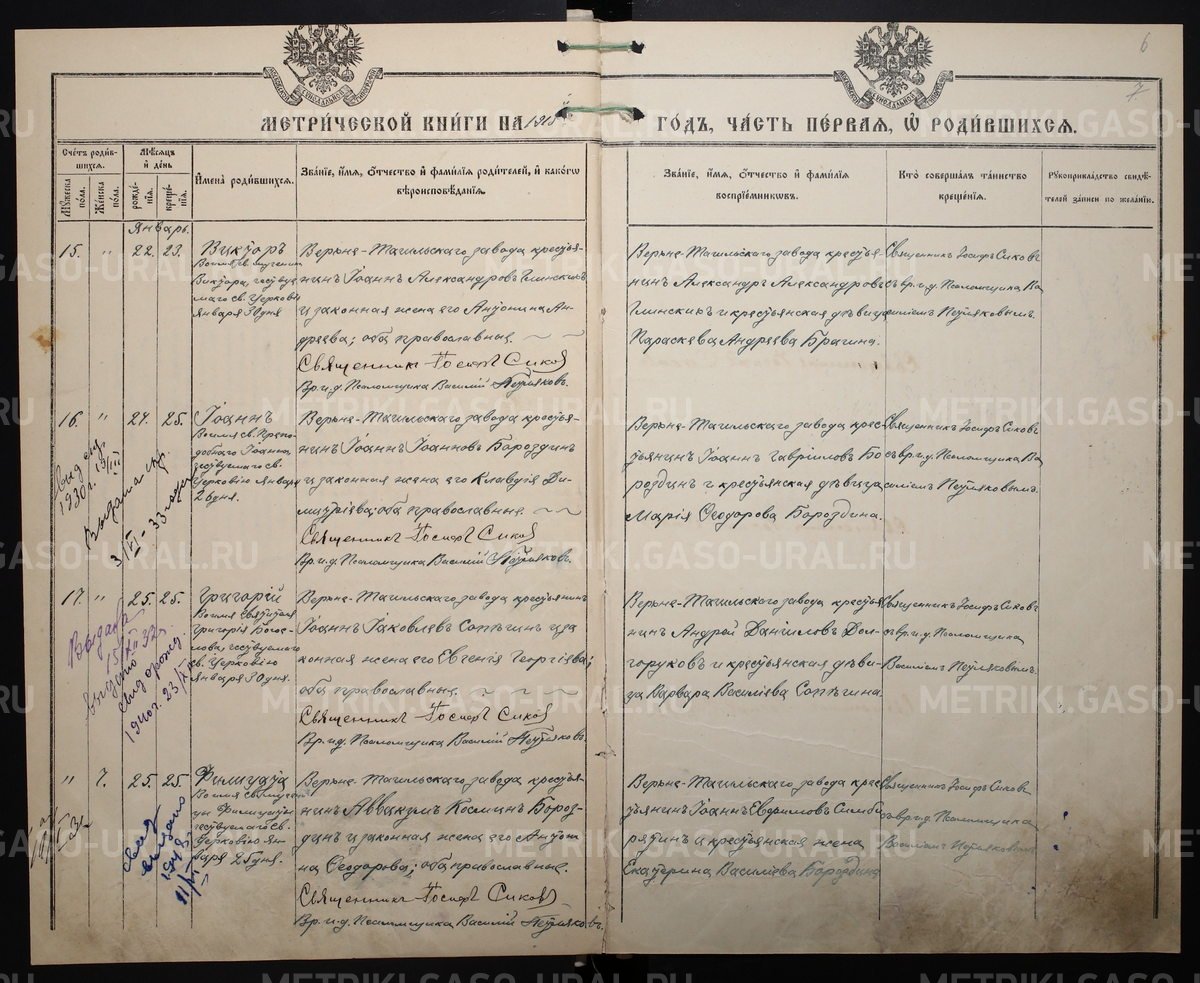 6
7.
МЕТРИ́ЧЕСКОЙ КНИ́ГИ НА 1915й ГО́ДЪ, ЧА́СТЬ ПЕ́РВАЯ, Ѡ҆ РОДИ́ВШИХСѦ.
Сче́тъ роди́в-
шихся.
Мѣ́сяцъ
и҆ де́нь
Му́жеска по́ла.
Же́нска по́ла.
рожде́-
нїя.
креще́-
нїя.
И҆мена̀ роди́вшихся.
Зва́нїе, и҆́мя, ѻ҆́тчество и҆ фами́лїя роди́телей, и҆ како́гѡ
вѣроисповѣ́данїя.
Зва́нїе, и҆́мя, ѻ҆́тчество и҆ фами́лїя
воспрїе́мникѡвъ.
Кто̀ соверша́лъ та́инство
креще́нїя.
Рꙋкоприкла́дство свидѣ́-
телей за́писи по жела́нїю.
Январь.
15. " 22. 23.
Викторъ
Виктора, чествуе-
маго св. Церковію
Января 30 дня
Верхне-Тагильскаго завода кресть-
нинъ Іоаннъ Александровъ Глинскихъ
и законная жена его Антонина Ан-
дреева; оба православные.
Священникъ Іосифъ Сиковъ
Вр. и. д. Псаломщика Василій Петряковъ.
Верхне-Тагильскаго завода кресть-
нинъ Александръ Александровъ
Глинскихъ и крестьянская дѣвица
Параскева Андреева Брагина.
Священникъ Іосифъ Сиковъ
съ вр. и. д. Псаломщика Ва-
силіемъ Петряковымъ.
16. " 24. 25.
Іоаннъ
Во имя св. Препо-
добнаго Іоанна,
чествуемаго св.
Церковію Января
26 дня.
Верхне-Тагильскаго завода кресть-
нинъ Іоаннъ Іоанновъ Бороздинъ
и законная жена его Клавдія Ди-
митріева; оба православные.
Священникъ Іосифъ Сиковъ
Вр. и. д. Псаломщика Василій Петряковъ.
Верхне-Тагильскаго завода крес-
тьянинъ Іоаннъ Гавріиловъ Бо-
роздинъ и крестьянская дѣвица
Марія Ѳеодорова Бороздина.
Священникъ Іосифъ Сиковъ
съ вр. и. д. Псаломщика Ва-
силіемъ Петряковымъ.
1930 г.
17. " 25. 25.
Григорій
Во имя Святителя
Григорія Богос-
лова, чествуемаго
св. Церковію
Января 30 дня.
Верхне-Тагильскаго завода крестьянинъ
Іоаннъ Іаковлевъ Сопѣгинъ и за
конная жена его Евгенія Георгіева;
оба православные.
Священникъ Іосифъ Сиковъ
Вр. и. д. Псаломщика Василій Петряковъ.
Верхне-Тагильскаго завода кресть-
нинъ Андрей Даніиловъ Дол-
горуковъ и крестьянская дѣви-
ца Варвара Василіева Сопѣгина.
Священникъ Іосифъ Сиковъ
съ вр. и. д. Псаломщика
Василіемъ Петряковымъ.
1940 г. 23/IX
" 7. 25. 25.
Филицата
Во имя св. мучени-
цы Филицаты,
чествуемаго св.
Церковію Ян-
варя 25 дня.
Верхне-Тагильскаго завода кресть-
нинъ Аввакумъ Космин Бороз-
динъ и законная жена его Антони
на Ѳеодорова; оба православные.
Священникъ Іосифъ Сиковъ
Вр. и. д. Псаломщика Василій Петряковъ.
Верхне-Тагильскаго завода крес-
тьянинъ Іоаннъ Евфимовъ Симби-
рятинъ и крестьянская жена
Екатерина Василіева Бороздина
Священникъ Іосифъ Сиковъ
съ вр. и. д. Псаломщика
Василіемъ Петряковымъ
METRIKI.GASO-URAL.RU